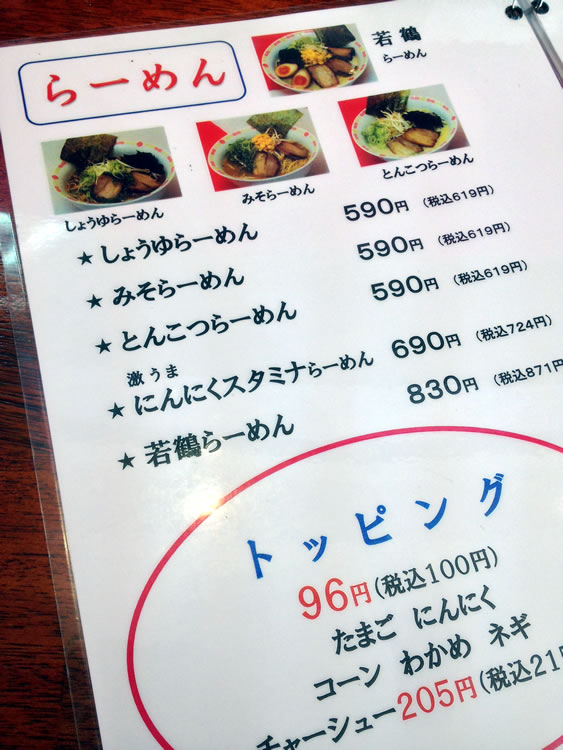 らーめん
若鶴
らーめん
しょうゆらーめん
みそらーめん
とんこつらーめん
★ しょうゆらーめん 590円 (税込619円)
★ みそらーめん 590円 (税込619円)
★ とんこつらーめん 590円 (税込619円)
激うま
★ にんにくスタミナらーめん 690円 (税込724円)
★ 若鶴らーめん 830円 (税込871円
トッピング
96円(税込100円)
たまご にんにく
コーン わかめ ネギ
チャーシュー205円(税込21